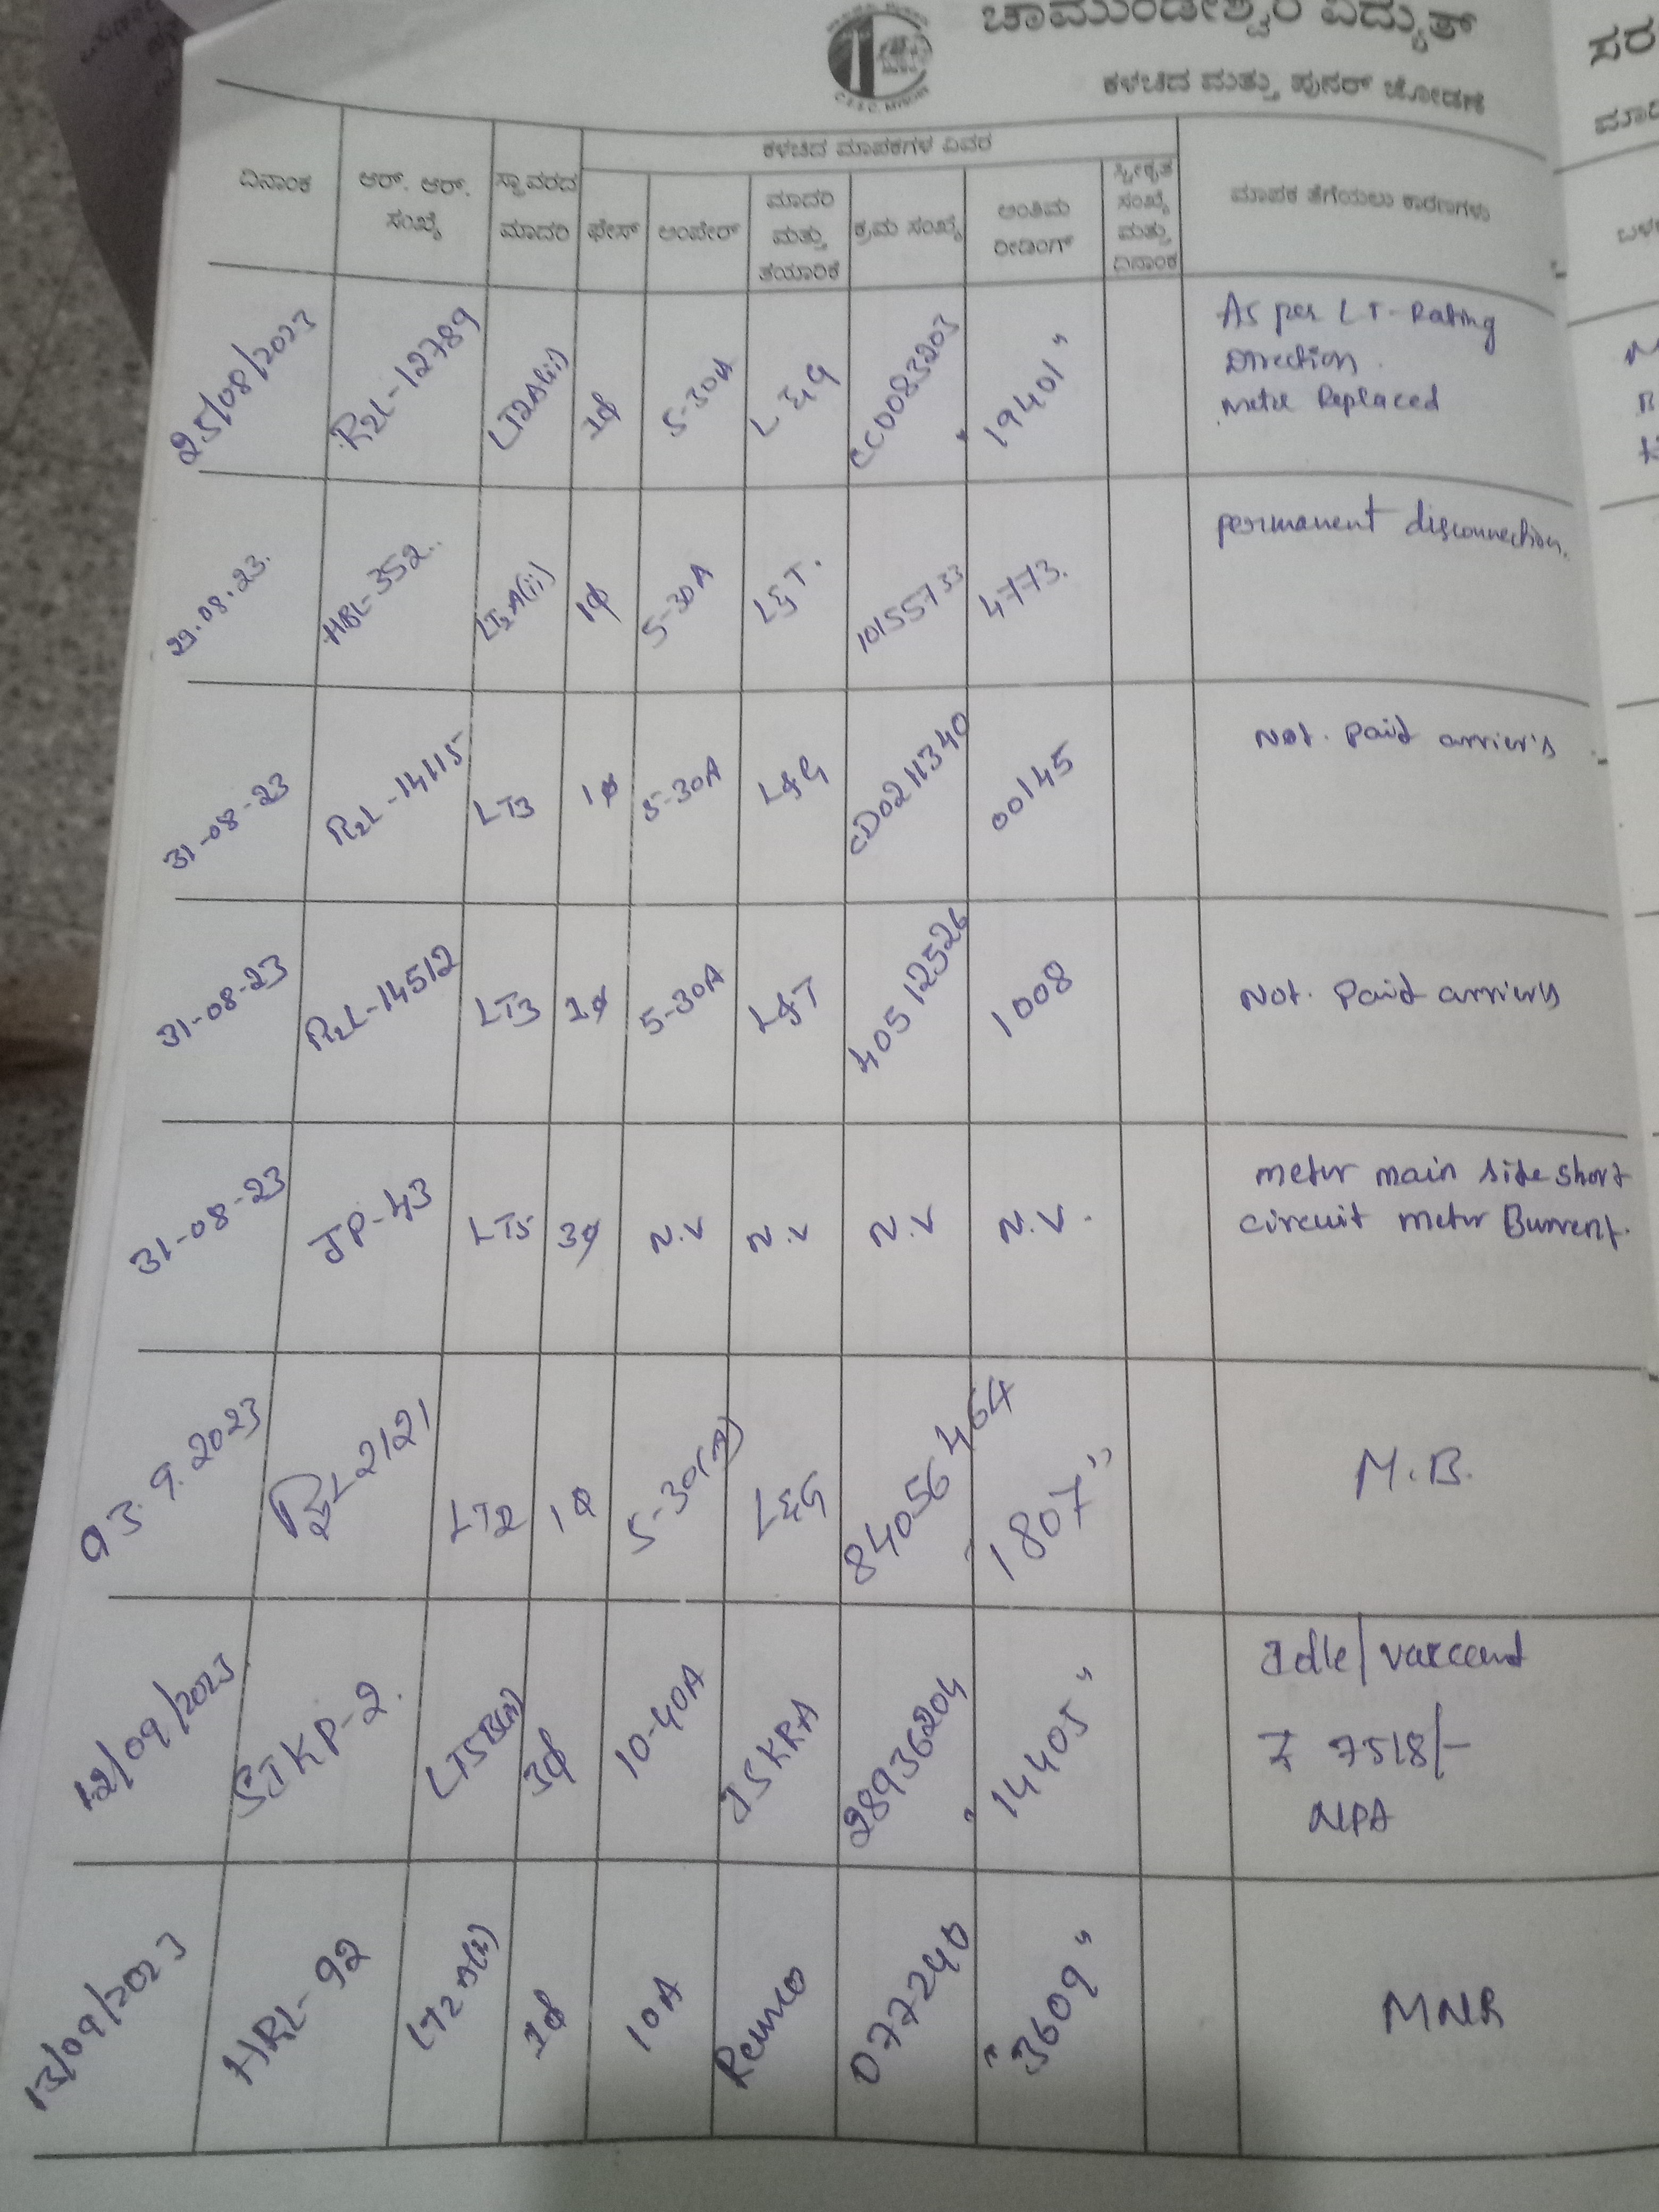 ಚಾಮುಂಡೇಶ್ವರಿ ವಿದ್ಯುತ್
ಕಳಚಿದ ಮತ್ತು ಪುನರ್ ಜೋಡಣೆ
C.E.S.C. MYSORE
ಕಳಚಿದ ಮಾಪಕಗಳ ವಿವರ
ದಿನಾಂಕ ಆರ್. ಆರ್. ಸಂಖ್ಯೆ ಸ್ಥಾವರದ ಮಾದರಿ ಫೇಸ್ ಅಂಪೇರ್ ಮಾದರಿ ಮತ್ತು ತಯಾರಿಕೆ ಕ್ರಮ ಸಂಖ್ಯೆ ಅಂತಿಮ ರೀಡಿಂಗ್ ಸ್ವೀಕೃತ ಸಂಖ್ಯೆ ಮತ್ತು ದಿನಾಂಕ ಮಾಪಕ ತೆಗೆಯಲು ಕಾರಣಗಳು
25/08/2023 RRL-12789 LT2A(ii) 1φ 5-30A L&G CC0083203 "19401" As per LT-Rating
Direction.
Meter Replaced
29.08.23. HBL-352.. LT2A(ii) 1φ 5-30A L&T. 10155733 4773. permanent disconnection.
31-08-23 RRL-14115 LT3 1φ 5-30A L&G CD0211340 00145 Not. Paid arrier's
31-08-23 RRL-14512 LT3 1φ 5-30A L&T 40512526 1008 Not. Paid arrier's
31-08-23 JP-43 LT5 3φ N.V N.V N.V N.V. meter main side short
circuit meter Burrent.
03.9.2023 RRL2121 LT2 1φ 5-30(A) L&G 84056464 "1807" M.B.
12/09/2023 SJKP-2. 3φ 10-40A ISKRA 28936204 "14405" Idle/vaccant
₹ 7518/-
NPA
13/09/2023 HRL-92 1φ 10A Remco 077240 "3609" MNR